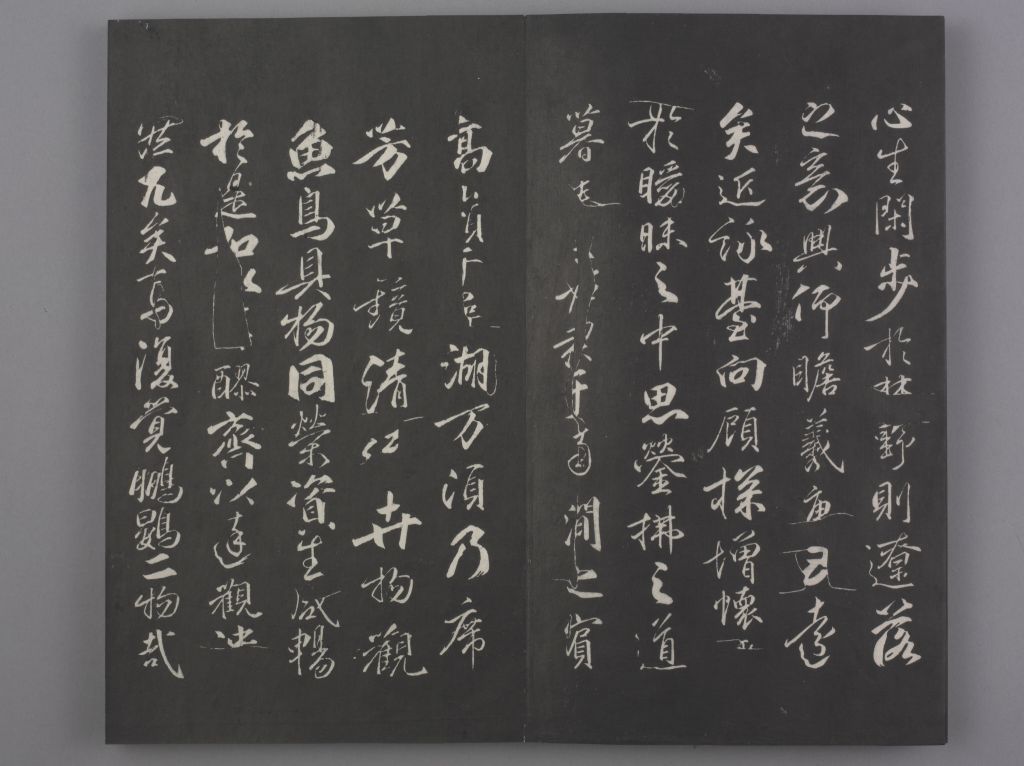 心生閑步於林野則遼落
之意興仰瞻羲唐已遠
矣近詠臺向顧探增懷
於曖昧之中思瑩拂之道
暮于南澗之濱
高湖万頃乃席
芳草鏡清卉物觀
魚鳥具物同榮資生咸暢
於是和醪齊以達觀決
然兀矣焉復覺鵬鷃二物哉